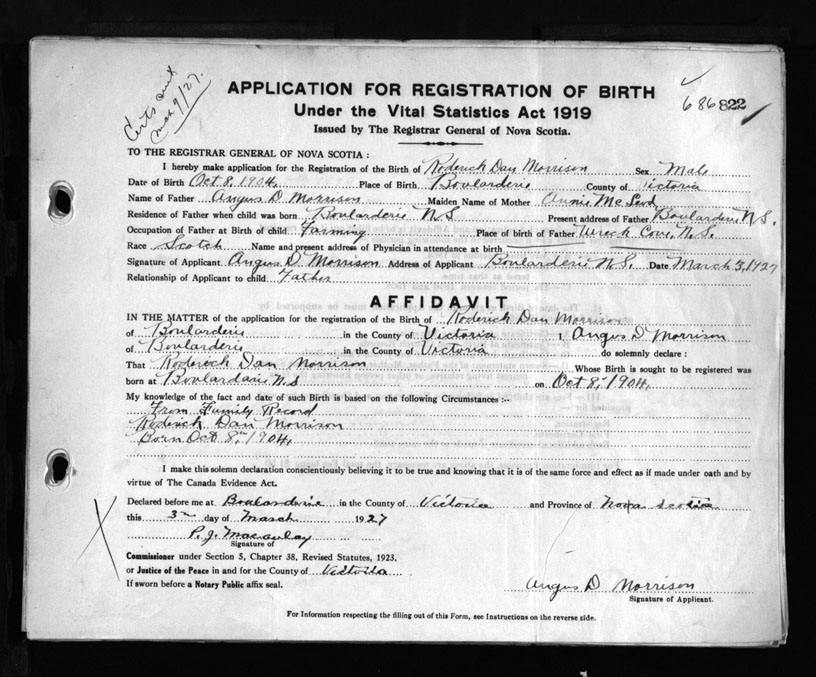 Certs sent
Mar 9/27.
APPLICATION FOR REGISTRATION OF BIRTH
Under the Vital Statistics Act 1919
686822
Issued by The Registrar General of Nova Scotia.
TO THE REGISTRAR GENERAL OF NOVA SCOTIA :
I hereby make application for the Registration of the Birth of Roderick Dan Morrison Sex Male
Date of Birth Oct 8, 1904. Place of Birth Boularderie County of Victoria
Name of Father Angus D Morrison Maiden Name of Mother Annie McLeod
Residence of Father when child was born Boularderie N S Present address of Father Boularderie N S.
Occupation of Father at Birth of child Farming Place of birth of Father Wreck Cove, N. S.
Race Scotch Name and present address of Physician in attendance at birth
Signature of Applicant Angus D. Morrison Address of Applicant Boularderie N. S. Date March 3, 1927
Relationship of Applicant to child Father
AFFIDAVIT
IN THE MATTER of the application for the registration of the Birth of Roderick Dan Morrison
of Boularderie in the County of Victoria I, Angus D Morrison
of Boularderie in the County of Victoria do solemnly declare :
That Roderick Dan Morrison Whose Birth is sought to be registered was
born at Boularderie N S on Oct 8, 1904.
My knowledge of the fact and date of such Birth is based on the following Circumstances :-
From Family Record
Roderick Dan Morrison
Born Oct 8th 1904.
I make this solemn declaration conscientiously believing it to be true and knowing that it is of the same force and effect as if made under oath and by
virtue of The Canada Evidence Act.
Declared before me at Boularderie in the County of Victoria and Province of Nova Scotia
this 3rd day of March 1927
P. J. Macaulay
Signature of
Commissioner under Section 5, Chapter 38, Revised Statutes, 1923.
or Justice of the Peace in and for the County of Victoria
If sworn before a Notary Public affix seal.
Angus D Morrison
Signature of Applicant.
For Information respecting the filling out of this Form, see Instructions on the reverse side.